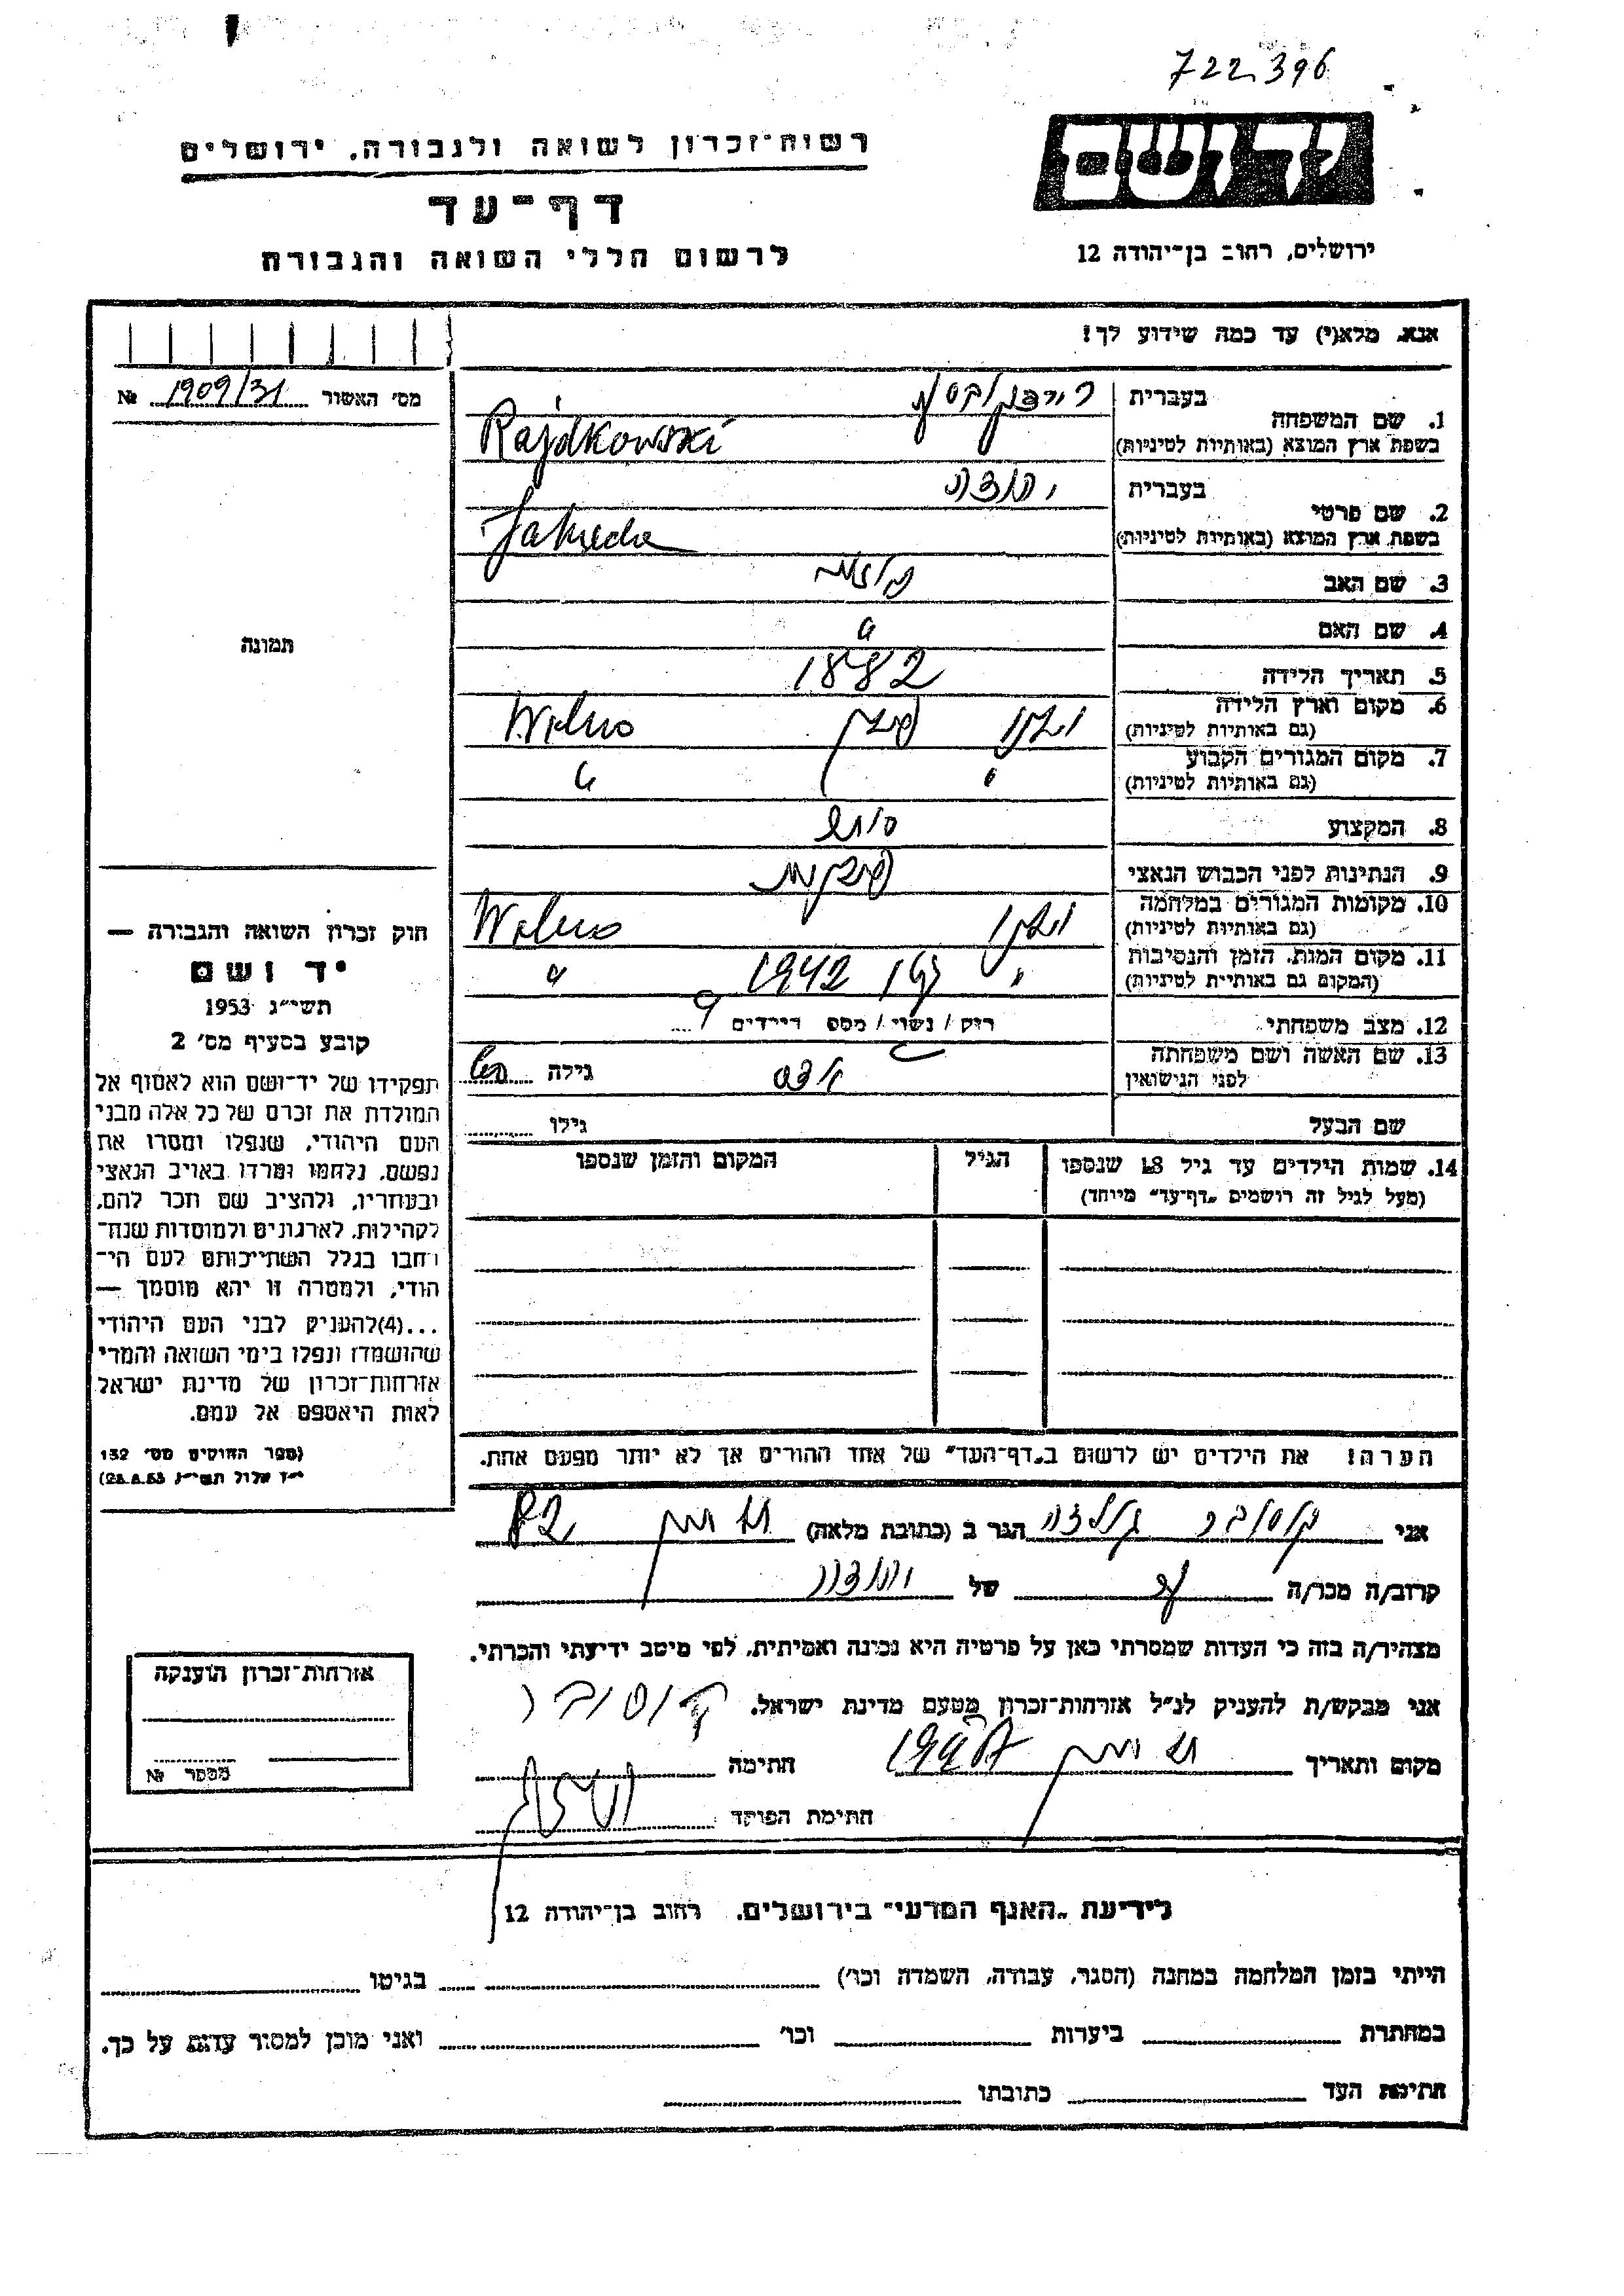 722396
רשות־זכרון לשואה ולגבורה, ירושלים
יד ושם
דף־עד
לרשום חללי השואה והגבורה
ירושלים, רחוב בן־יהודה 12
אנא, מלא(י) עד כמה שידוע לך!
מס' האשור 1909/31 №
1. שם המשפחה
בעברית
בשפת ארץ המוצא (באותיות לטיניות) Rajdkowski
2. שם פרטי
בעברית יהודה
בשפת ארץ המוצא (באותיות לטיניות)
3. שם האב
4. שם האם
תמונה
5. תאריך הלידה 1882
6. מקום וארץ הלידה וילנו פולין Wilno
(גם באותיות לטיניות)
7. מקום המגורים הקבוע " "
(גם באותיות לטיניות)
8. המקצוע סוחר
9. הנתינות לפני הכבוש הנאצי פולנית
10. מקומות המגורים במלחמה וילנו Wilno
(גם באותיות לטיניות)
11. מקום המות, הזמן והנסיבות " 1942 "
(המקום גם באותיות לטיניות)
12. מצב משפחתי רוק / נשוי / מספ הילדים
13. שם האשה ושם משפחתה גילה
לפני הנישואין
שם הבעל גילו
14. שמות הילדים עד גיל 18 שנספו הגיל המקום והזמן שנספו
(מעל לגיל זה רושמים „דף־עד" מיוחד)
הערה! את הילדים יש לרשום ב„דף־העד" של אחד ההורים אך לא יותר מפעם אחת.
חוק זכרון השואה והגבורה —
יד ושם
תשי"ג 1953
קובע בסעיף מס' 2
תפקידו של יד־ושם הוא לאסוף אל
המולדת את זכרם של כל אלה מבני
העם היהודי, שנפלו ומסרו את
נפשם, נלחמו ומרדו באויב הנאצי
ובעוזריו, ולהציב שם וזכר להם,
לקהילות, לארגונים ולמוסדות שנח־
רבו בגלל השתייכותם לעם הי־
הודי, ולמטרה זו יהא מוסמך —
...(4)להעניק לבני העם היהודי
שהושמדו ונפלו בימי השואה והמרי
אזרחות־זכרון של מדינת ישראל
לאות היאספם אל עמם.
(ספר החוקים מס' 132
י"ז אלול תשי"ג 28.8.53)
אני הגר ב (כתובת מלאה)
קרוב/ה מכר/ה של יהודה
מצהיר/ה בזה כי העדות שמסרתי כאן על פרטיה היא נכונה ואמיתית, לפי מיטב ידיעתי והכרתי.
אני מבקש/ת להעניק לנ"ל אזרחות־זכרון מטעם מדינת ישראל.
מקום ותאריך חתימה
חתימת הפוקד
אזרחות־זכרון הוענקה
מספר №
לידיעת „האגף המדעי" בירושלים, רחוב בן־יהודה 12
הייתי בזמן המלחמה במחנה (הסגר, עבודה, השמדה וכו') בגיטו
במחתרת ביערות וכו' ואני מוכן למסור עדות על כך.
חתימת העד כתובתו